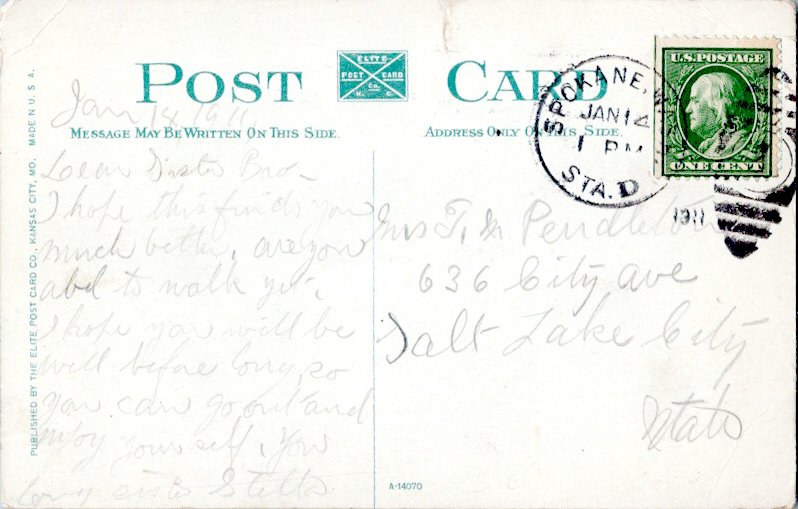 POST CARD
ELITE
POST CARD
Co.
K. C.
MESSAGE MAY BE WRITTEN ON THIS SIDE.
ADDRESS ONLY ON THIS SIDE.
PUBLISHED BY THE ELITE POST CARD CO., KANSAS CITY, MO. MADE IN U. S. A.
Jan 14 1911
Dear Sister Bro-
I hope this finds you
much better, are you
abl to walk yet.
I hope you will be
well before long, so
you can go out and
enjoy yourself. Your
loving sister Stella
SPOKANE, W
JAN 14
1 PM
1911
STA. D
U.S. POSTAGE
ONE CENT
Mrs T. M Pendleton
636 City ave
Salt Lake City
Utah
A-14070